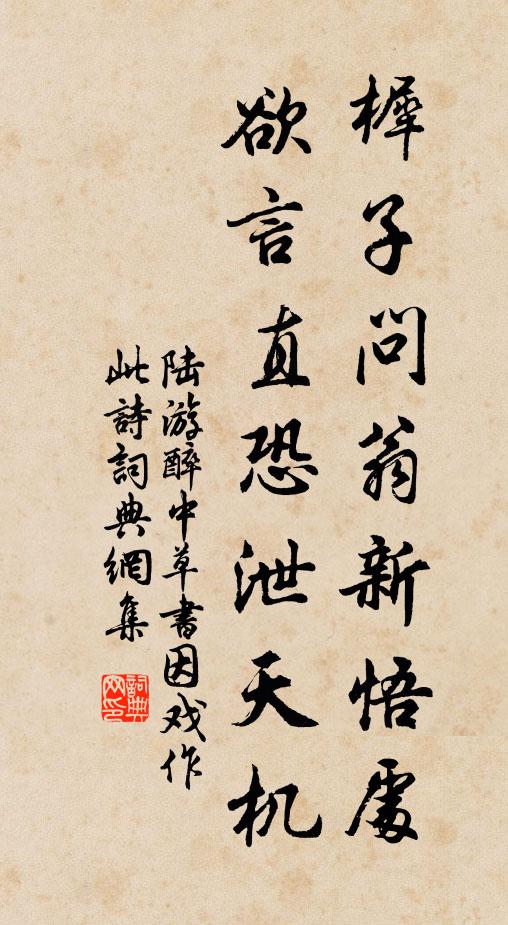 樨子問翁新悟處
欲言直恐泄天机
陆游醉中草書因戏作
此詩詞典網集
詞典
网印